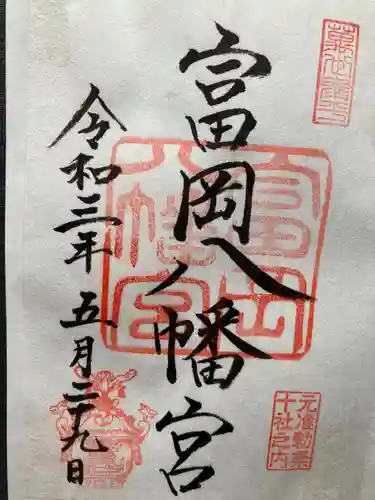 富岡八幡宮
富岡
八幡宮
元准勅祭
十社之内
令和三年五月二十九日